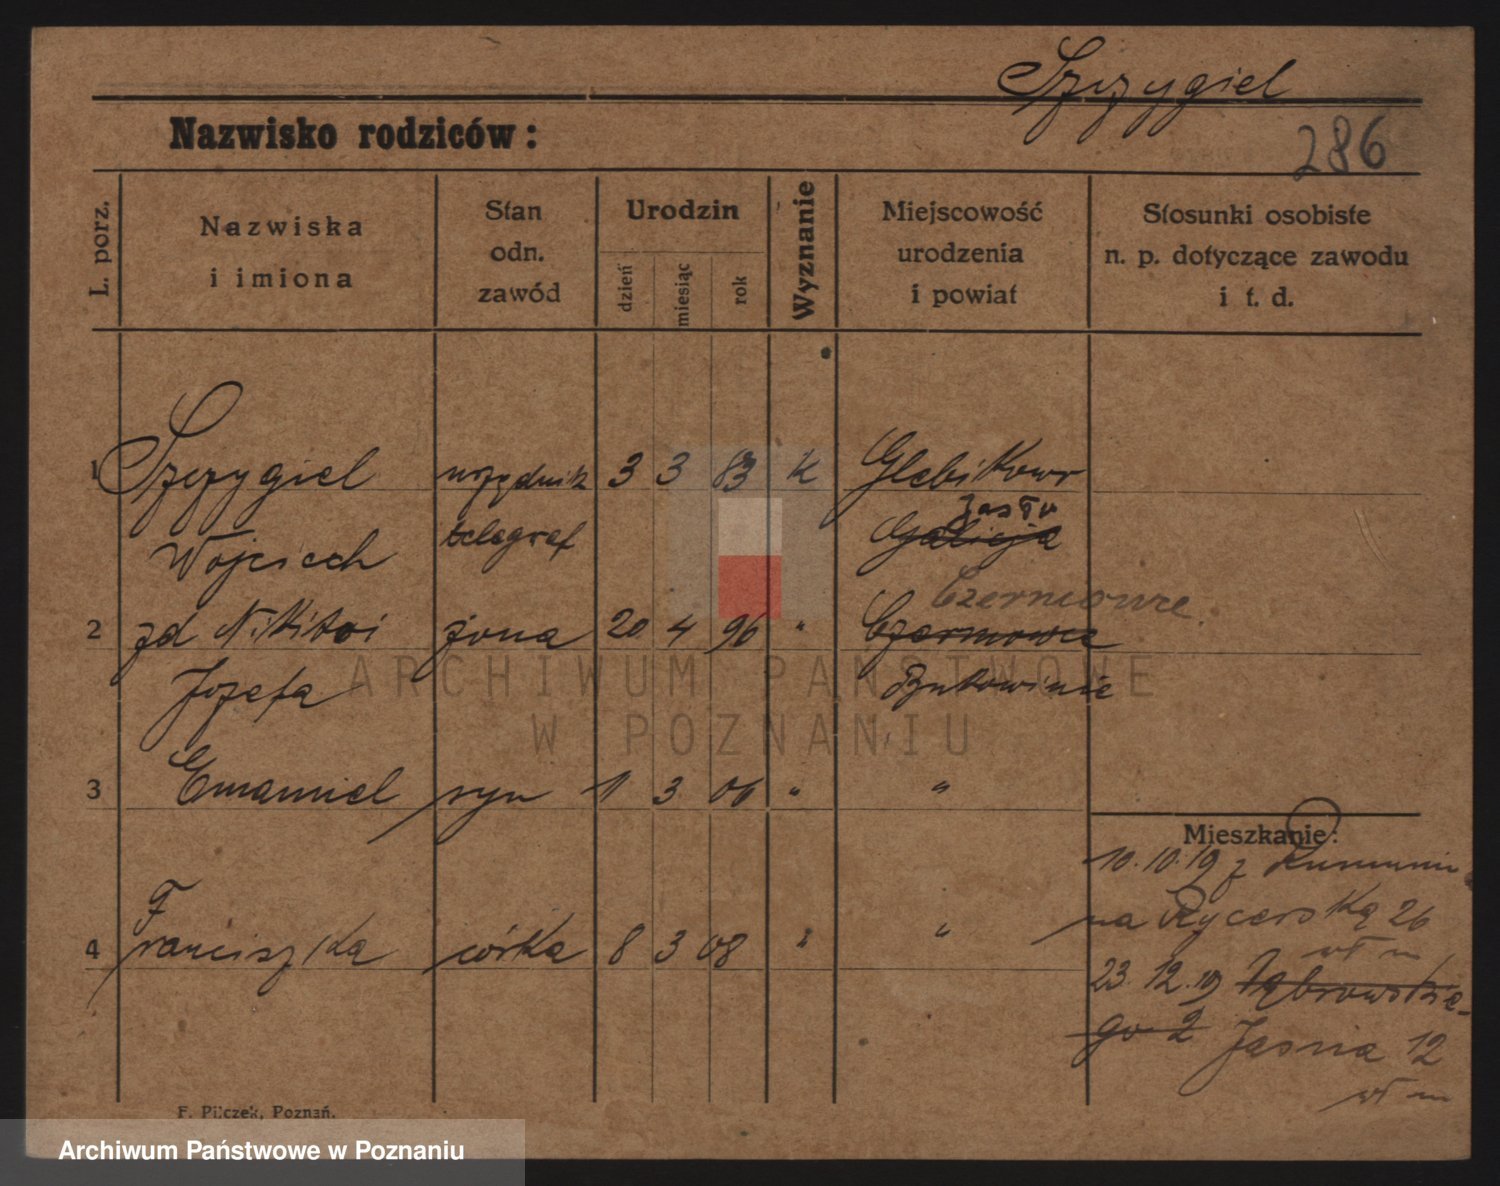 Szczygiel
Nazwisko rodziców:
286
L. porz.
Nazwiska
i imiona
Stan
odn.
zawód
Urodzin
dzień
miesiąc
rok
Wyznanie
Miejscowość
urodzenia
i powiat
Stosunki osobiste
n. p. dotyczące zawodu
i t. d.
1 Szczygiel urzędnik 3 3 83 k Glebikowo
Jasło
Wojciech telegraf Galicja
Czerniowce
2 zd Nikitoi żona 20 4 96 " Czerniowce
Józefa Bukowinie
3 Emanuel syn 1 3 06 " "
4 Franciszka córka 8 3 08 " "
Mieszkanie:
10.10.19 z Rumunii
na Rycerską 26
wł m
23.12.19 Dąbrowskie-
go 2 Jasna 12
wł m
F. Pilczek, Poznań.
ARCHIWUM PAŃSTWOWE
W POZNANIU
Archiwum Państwowe w Poznaniu